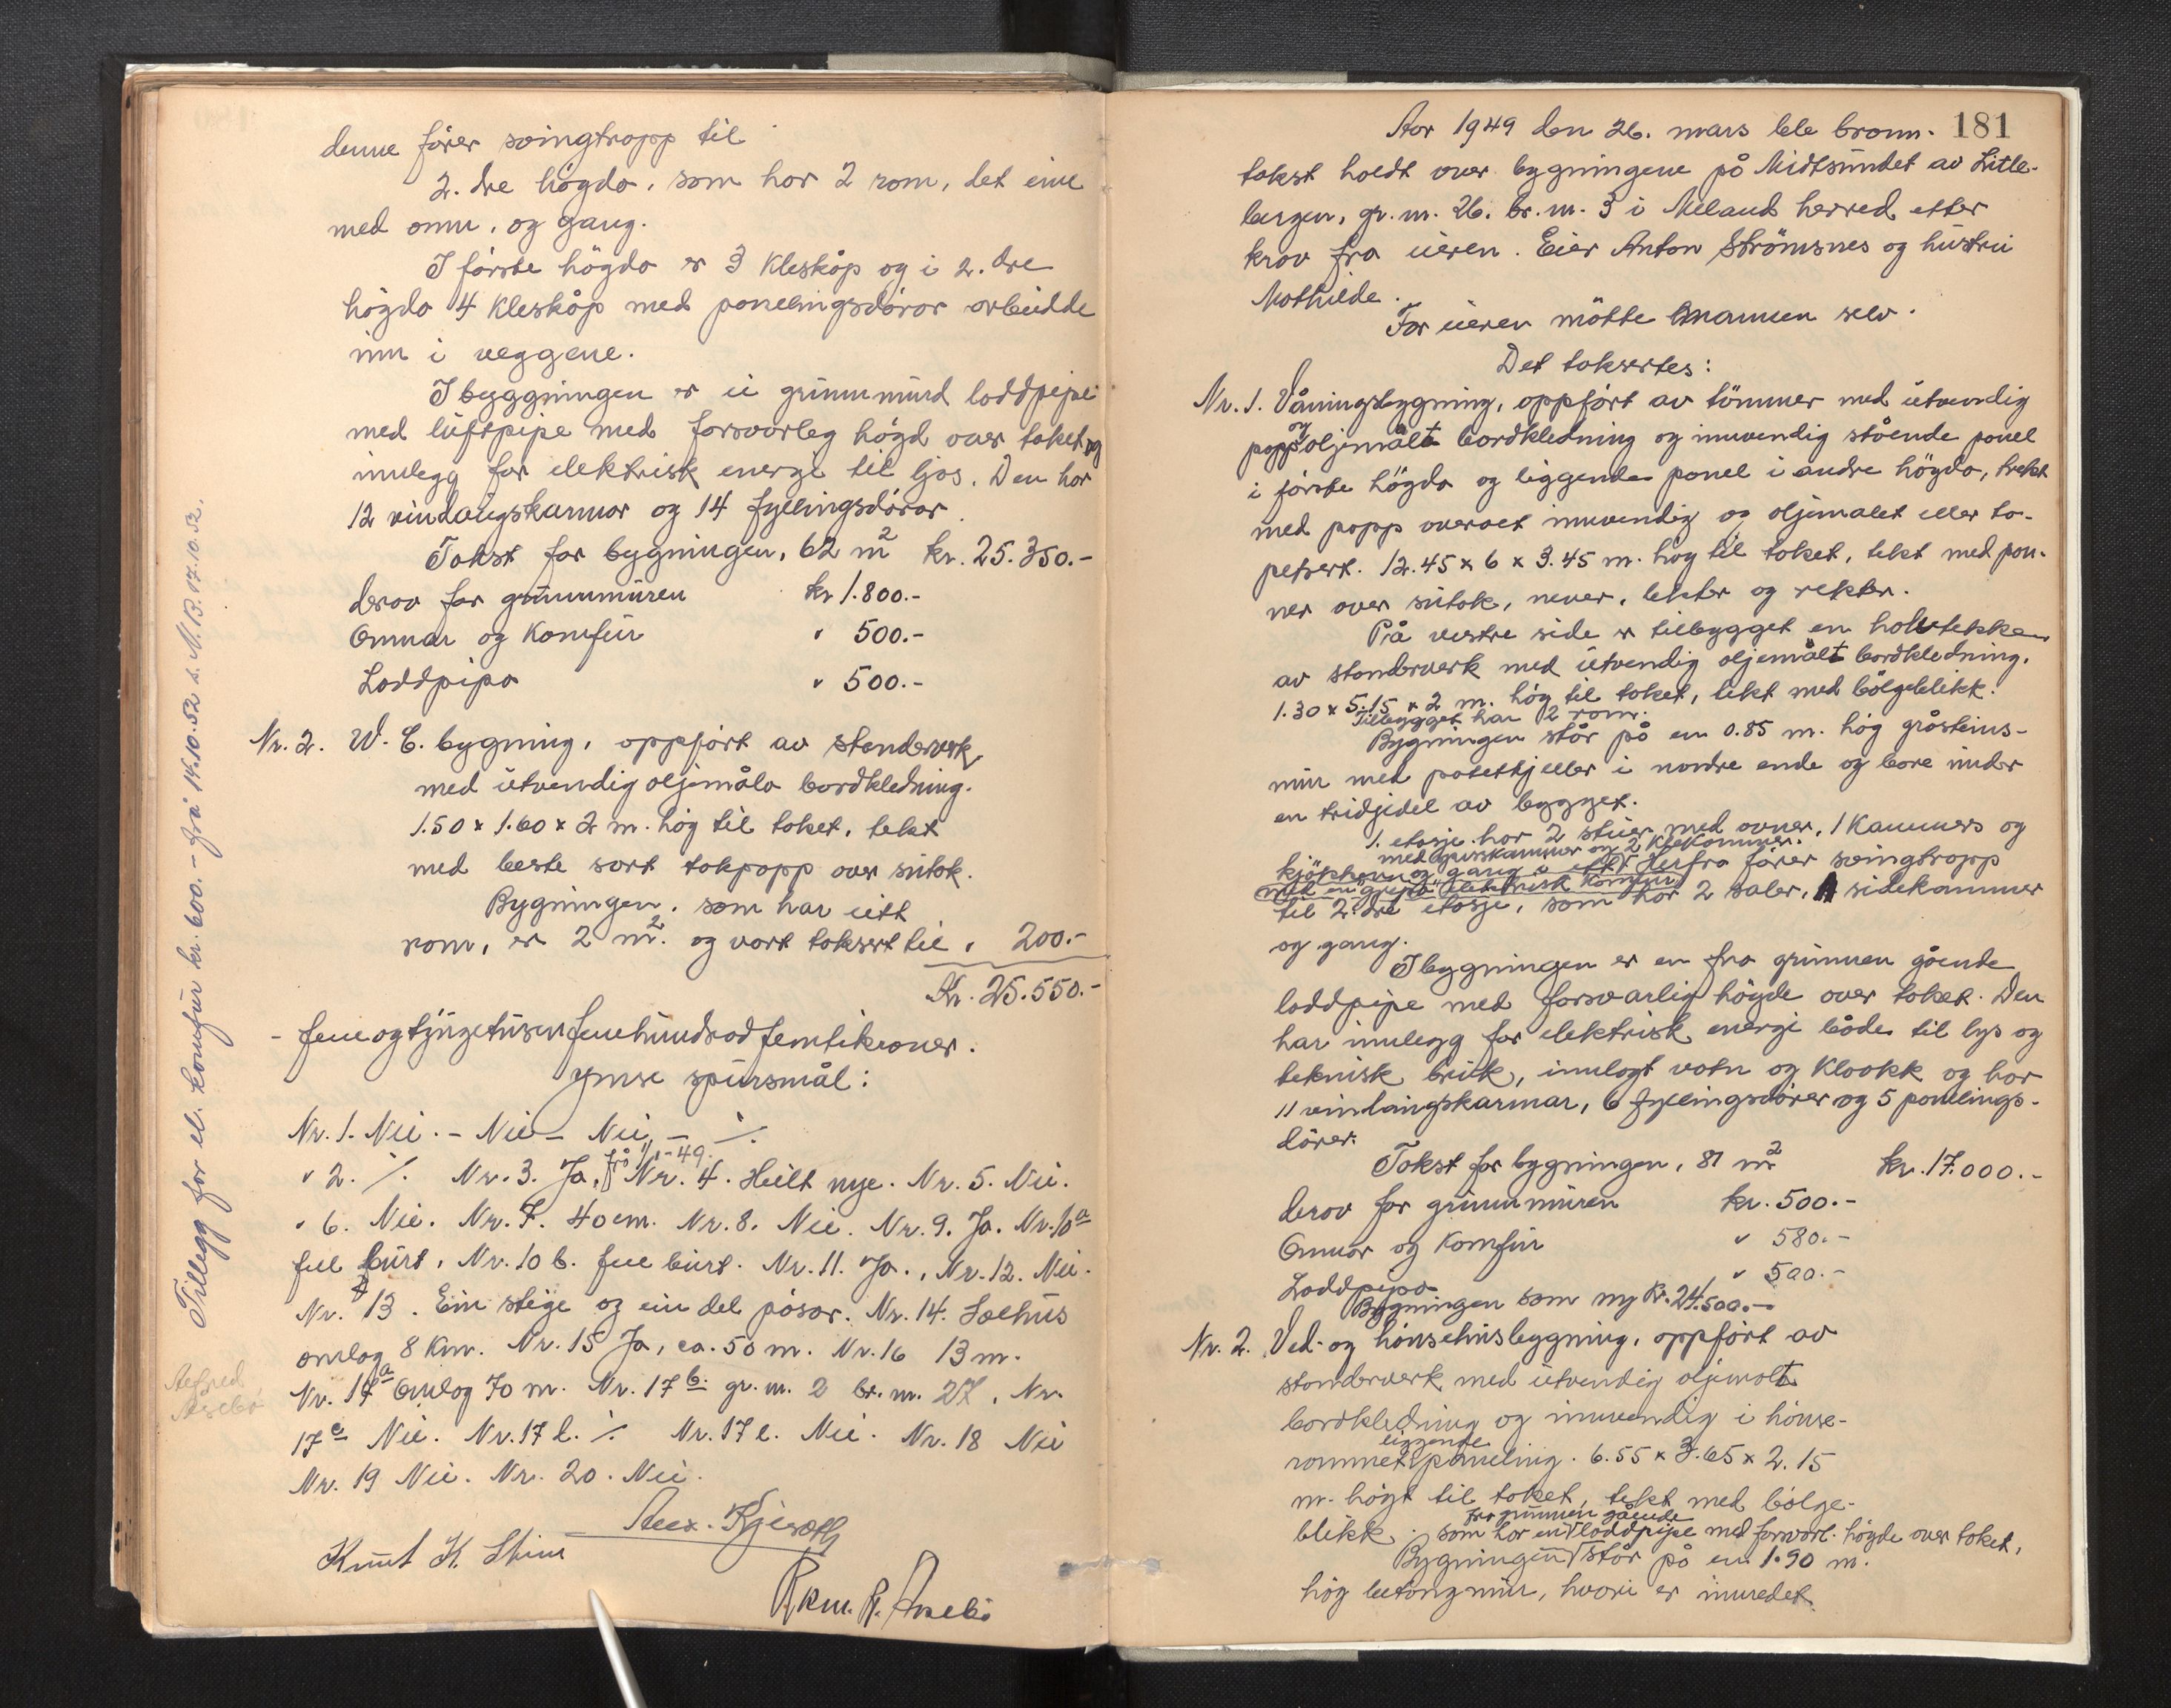 denne fører svingtropp til
2. dre högda, som har 2 rom, det eine
med omn, og gang.
I første högda er 3 kleskåp og i 2. dre
högda 4 kleskåp med panelingsdörar arbeidde
inn i veggene.
I byggningen er ei grunnmurd loddpipe
med luftpipe med forsvarleg högd over taket og
innlegg for elektrisk energi til ljos. Den har
12 vindaugskarmar og 14 fyllingsdörar.
Takst for bygningen, 62 m² kr. 25.350.-
derav for grunnmuren kr 1.800.-
Omnar og Komfur " 500.-
Loddpipa " 500.-
Nr. 2. W. C. bygning, oppfört av stenderverk,
med utvendig oljemåla bordkledning.
1.50 x 1.60 x 2 m. hög til taket, tekt
med beste sort takpapp over sutak.
Bygningen, som har eitt
rom, er 2 m². og vart taksert til " 200.-
Kr. 25.550.-
- femogtjugetusen femhundrad femtikroner.
Ymse spursmål:
Nr. 1. Nei. - Nei - Nei. - ./.
" 2. ./. Nr. 3. Ja, frå 1/1-49. Nr. 4. Heilt nye. Nr. 5. Nei.
" 6. Nei. Nr. 7. 40 cm. Nr. 8. Nei. Nr. 9. Ja. Nr. 10 a
full burt. Nr. 10 b. full burt. Nr. 11. Ja., Nr. 12. Nei.
Nr. 13. Ein stige og ein del pösar. Nr. 14. Salhus
omlag 8 Km. Nr. 15 Ja, ca. 50 m. Nr. 16 13 m.
Nr. 17 a Omlag 70 m. Nr. 17 b. gr. nr. 2 br. nr. 27, Nr.
17 c Nei. Nr. 17 d. ./. Nr. 17 e. Nei. Nr. 18 Nei
Nr. 19 Nei. Nr. 20. Nei.
Knut K.
Rasm. R.
Tillegg for el. komfur kr 600.- frå 14.10.52 s. M. B. 17.10.52.
Alfred
181
Aar 1949 den 26. mars ble brann-
takst holdt over bygningene på Midtsundet av Litle-
bergen, gr. nr. 26. br. nr. 3 i Meland herred etter
krav fra eieren. Eier Anton Strömsnes og hustru
Mathilde.
For eieren mötte mannen selv.
Det taksertes:
Nr. 1. Våningsbygning, oppfört av tömmer med utvendig
papp og oljemålt bordkledning og innvendig stående panel
i første högda og liggende panel i andre högda, trekt
med papp overalt innvendig og oljemalet eller ta-
petsert. 12.45 x 6 x 3.45 m. hög til taket, tekt med pan-
ner over sutak, never, lekter og rekter.
På vestre side er tilbygget en halvtekke
av stenderverk med utvendig oljemålt bordkledning.
1.30 x 5.15 x 2 m. hög til taket, tekt med bölgeblikk.
Tilbygget har 2 rom.
Bygningen står på en 0.85 m. hög gråsteins-
mur med potetkjeller i nordre ende og bare under
en tridjedel av bygget.
1. etasje har 2 stuer med ovner, 1 kammers og
med grisskammer og 2 klekammer.
kjökken og gang. Herfra förer svingtropp
med en "grepa" elektrisk komfur
til 2. dre etasje, som har 2 saler, sidekammer
og gang.
I bygningen er en fra grunnen gående
loddpipe med forsvarlig högde over taket. Den
har innlegg for elektrisk energi både til lys og
teknisk bruk, innlagt vatn og kloakk og har
11 vindaugskarmar, 6 fyllingsdörer og 5 panelings-
dörer.
Takst for bygningen, 81 m² kr. 17.000.-
derav for grunnmuren kr. 500.-
Omnar og Komfur " 580.-
Loddpipa " 500.-
Bygningen som ny kr. 24.500.-
Nr. 2. Ved- og hönsehusbyggning, oppfört av
stenderverk med utvendig oljemalt
bordkledning og innvendig i hönse-
rommet liggende paneling. 6.55 x 3.65 x 2.15
m. högt til taket, tekt med bölge-
blikk.
Bygningen som har en fra grunnen gående loddpipe med forsvarl. högde over taket, står på en 1.90 m.
hög betongmur, hvori er innredet